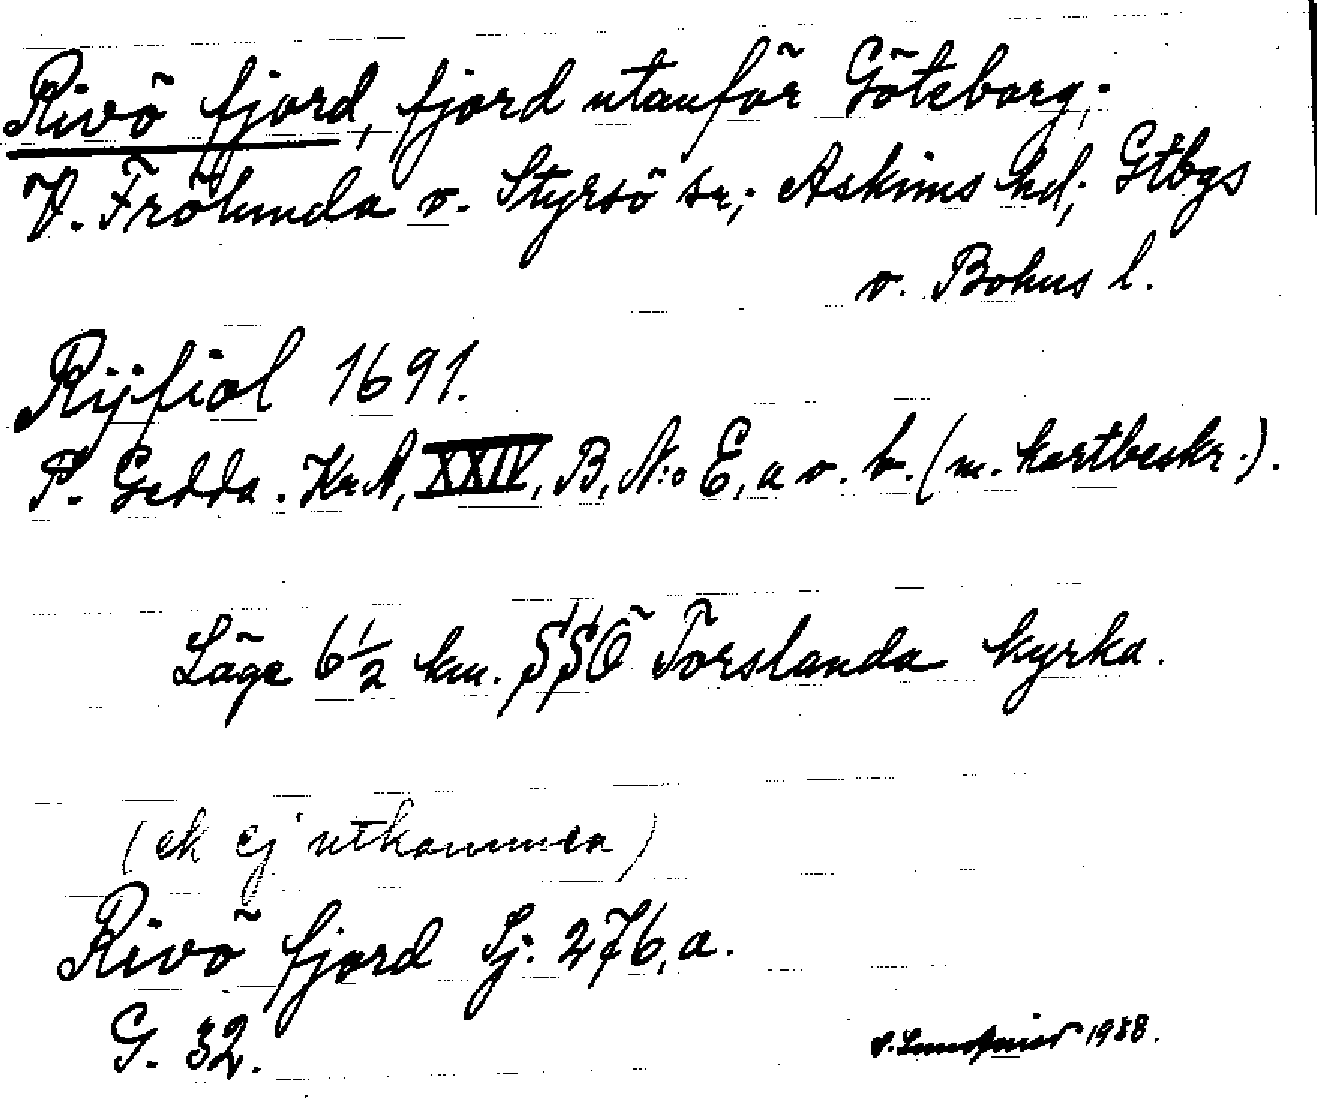 Rivö fjord, fjord utanför Göteborg.
V. Frölunda o. Styrsö sr; Askims hd; Gtbgs
o. Bohus l.
Rijfiol 1691.
P. Gedda. Kr.A, XXIV, B, N:o E, a o. b. (m. kartbeskr.).
Läge 6 1/2 km. SSÖ Torslanda kyrka.
(ek ej utkommen)
Rivö fjord Sj. 276, a.
G. 32.
1938.